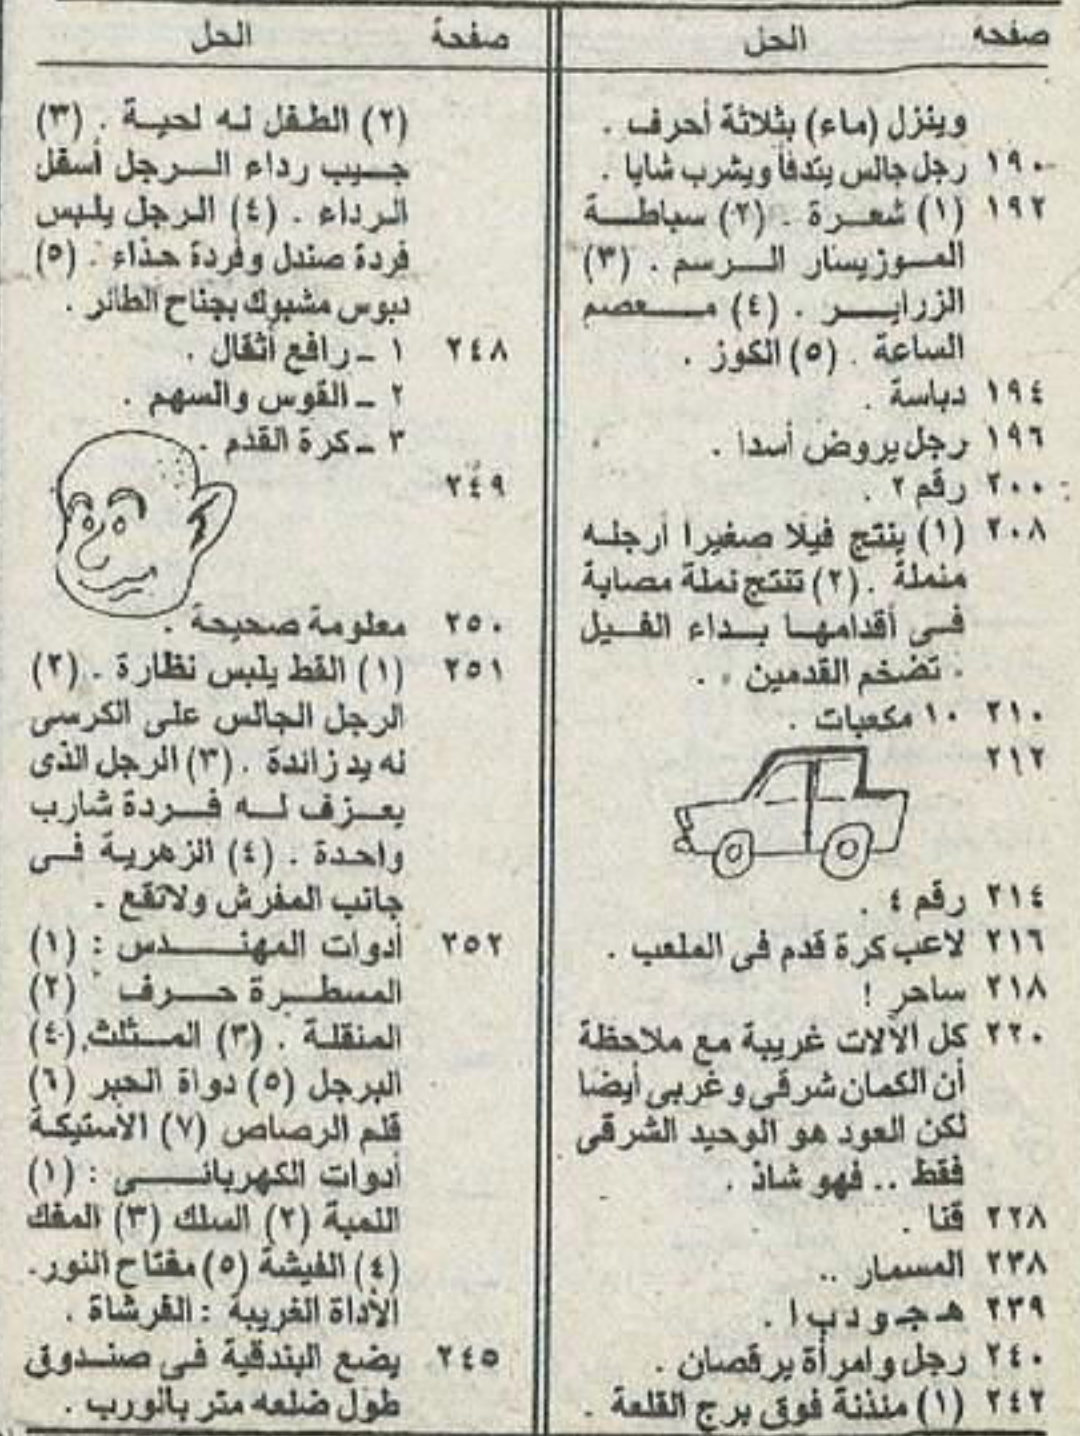 صفحه الحل
وينزل (ماء) بثلاثة أحرف .
١٩٠ رجل جالس يتدفأ ويشرب شايا .
١٩٢ (١) شعرة . (٢) سباطة
الموزيسار الرسم . (٣)
الزراير . (٤) معصم
الساعة . (٥) الكوز .
١٩٤ دباسة .
١٩٦ رجل يروض أسدا .
٢٠٠ رقم ٢ .
٢٠٨ (١) ينتج فيلا صغيرا أرجله
منملة . (٢) تنتج نملة مصابة
فى أقدامها بداء الفيل
. تضخم القدمين . .
٢١٠ ١٠ مكعبات .
٢١٢
٢١٤ رقم ٤ .
٢١٦ لاعب كرة قدم فى الملعب .
٢١٨ ساحر !
٢٢٠ كل الآلات غريبة مع ملاحظة
أن الكمان شرقى وغربى أيضا
لكن العود هو الوحيد الشرقى
فقط .. فهو شاذ .
٢٢٨ قنا .
٢٣٨ المسمار ..
٢٣٩ هـ جـ و د ب ا .
٢٤٠ رجل وامرأة يرقصان .
٢٤٢ (١) منذنة فوق برج القلعة .
صفحة الحل
(٢) الطفل له لحية . (٣)
جيب رداء الرجل أسفل
الرداء . (٤) الرجل يلبس
فردة صندل وفردة حذاء . (٥)
دبوس مشبوك بجناح الطائر .
٢٤٨ ١ - رافع أثقال .
٢ - القوس والسهم .
٣ - كرة القدم .
٢٤٩
٢٥٠ معلومة صحيحة .
٢٥١ (١) القط يلبس نظارة . (٢)
الرجل الجالس على الكرسى
له يد زائدة . (٣) الرجل الذى
يعزف له فردة شارب
واحدة . (٤) الزهرية فى
جانب المفرش ولاتقع .
٢٥٢ أدوات المهندس : (١)
المسطرة حرف (٢)
المنقلة . (٣) المثلث . (٤)
البرجل (٥) دواة الحبر (٦)
قلم الرصاص (٧) الأستيكة
أدوات الكهربائى : (١)
اللمبة (٢) السلك (٣) المفك
(٤) الفيشة (٥) مفتاح النور .
الأداة الغريبة : الفرشاة .
٢٤٥ يضع البندقية فى صندوق
طول ضلعه متر بالورب .